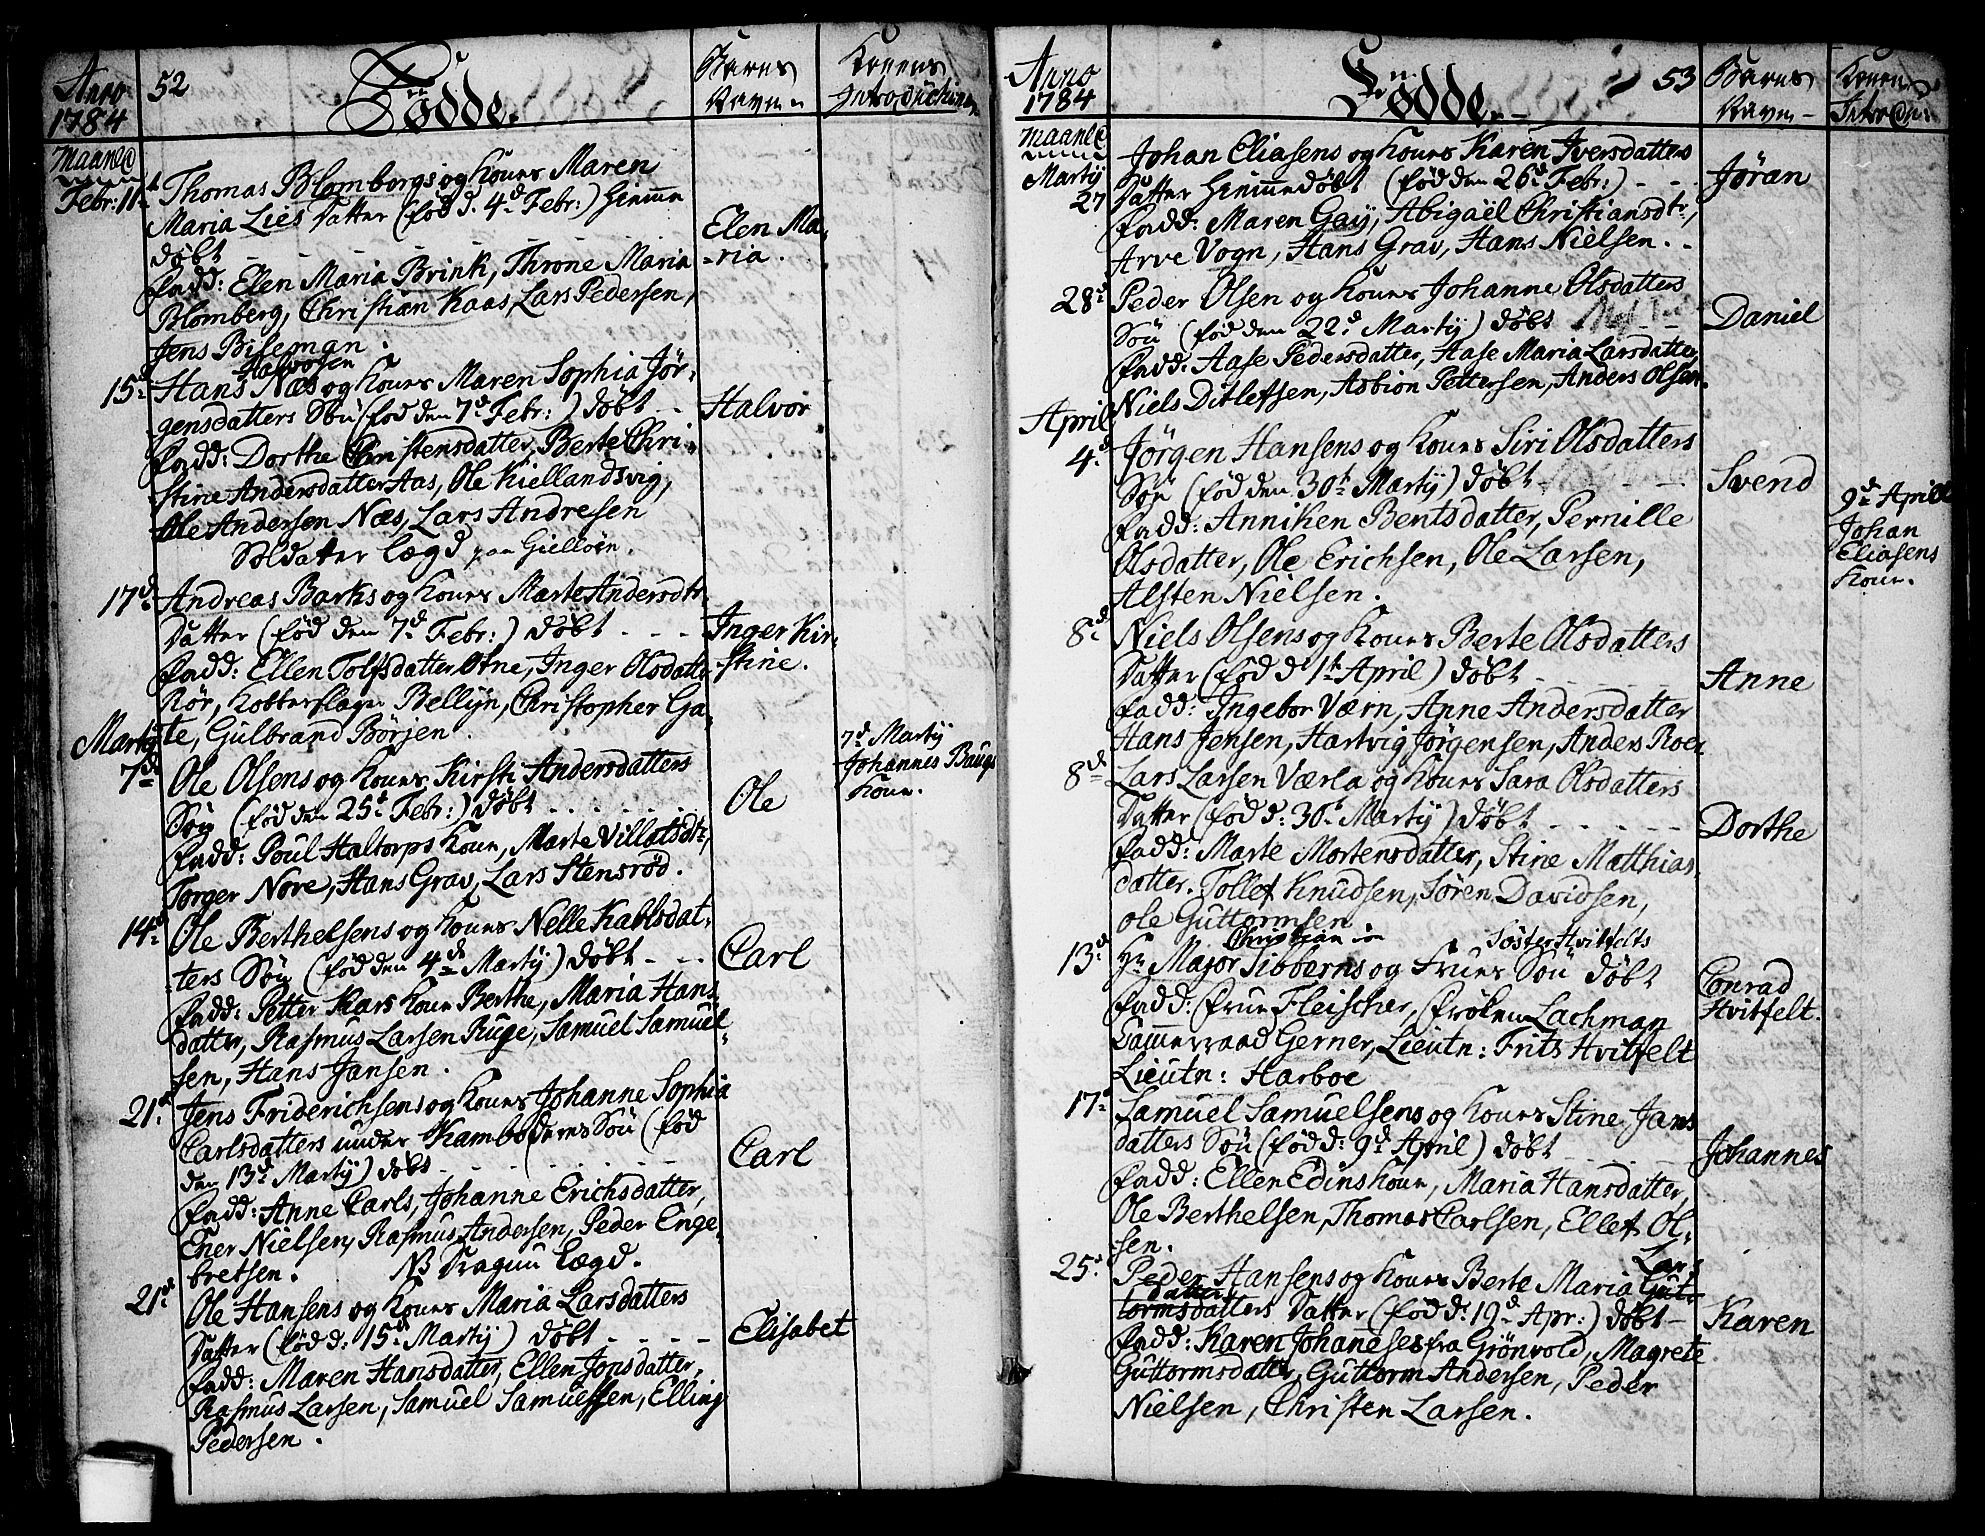 Anno 1784
52
Fødde.
Barns Navn
Konens Introduction
Maaned
Febr: 11t
Thomas Blombergs og Kones Maren
Maria Lies Datter (fød d. 4d Febr:) hiemme
døbt
Fadd: Elen Maria Brink, Throne Maria
Blomberg, Christian Kaas, Lars Pedersen,
Jens Biseman.
Elen Ma-
-ria.
15d
Halvorsen
Hans Næs og Kones Maren Sophia Jør-
gensdatters Søn (fød den 7d Febr:) døbt
Fadd: Dorthe Christensdatter, Berte Chri-
stine Andersdatter Aas, Ole Kiellandsvig,
Ole Andersen Næs, Lars Andresen
Soldatter Lægd paa Gielløen.
Halvor
17d
Andreas Barks og Kones Marte Andersdtr
Datter (fød den 7d Febr:) døbt
Fadd: Ellen Tolfsdatter Otne, Inger Olsdatter
Rör, Kobberslager Bellijn, Christopher Ga-
te, Gulbrand Börjen.
Inger Kir-
stine.
Martij
7d
Ole Olsens og Kones Kirsti Andersdatters
Søn (fød den 25t Febr:) døbt
Fadd: Poul Haltorps Kone, Marte Villatsdtr,
Torger Nore, Hans Grav, Lars Stensrød.
Ole
7d Martij
Johannes Baugs
Kone.
14d
Ole Berthelsens og Kones Nelle Kablsdat-
ters Søn (fød den 4d Martij) døbt
Fadd: Petter Kars Kone Berthe, Maria Hans-
datter, Rasmus Larsen Ruge, Samuel Samuel-
sen, Hans Jansen.
Carl
21d
Jens Friderichsens og Kones Johanne Sophia
Carlsdatters under Kambo deres Søn (fød
den 13d Martij) døbt
Fadd: Anne Carls, Johanne Erichsdatter,
Ener Nielsen, Rasmus Andersen, Peder Enge-
bretsen. NB Dragun Lægd.
Carl
21d
Ole Hansens og Kones Maria Larsdatters
Datter (fød d: 15d Martij) døbt
Fadd: Maren Hansdatter, Ellen Jonsdatter,
Rasmus Larsen, Samuel Samuelsen, Elling
Pedersen.
Elisabet
Anno 1784
Fødde.
53
Barns Navn
Konens Introd:
Maaned
Martij
27
Johan Eliasens og Kones Karen Iversdatters
Datter hiemmedøbt (fød den 26d Febr:)
Fadd: Maren Gaij, Abigaël Christiansdtr,
Arve Vogn, Hans Grav, Hans Nielsen.
Jøran
28d
Peder Olsen og Kones Johanne Olsdatters
Søn (fød den 22d Martij) døbt
Fadd: Aase Pedersdatter, Aase Maria Larsdatter,
Niels Ditlefsen, Asbion Pettersen, Anders Olsen.
Daniel
April
4d
Jørgen Hansens og Kones Siri Olsdatters
Søn (fød den 30t Martij) døbt
Fadd: Anniken Bentsdatter, Pernille
Olsdatter, Ole Erichsen, Ole Larsen,
Alsten Nielsen.
Svend
9d Aprill
Johan
Eliasens
Kone.
8d
Niels Olsens og Kones Berte Olsdatters
Datter (fød d 1t April) døbt
Fadd: Ingebor Værn, Anne Andersdatter
Hans Jensen, Hartvig Jørgensen, Anders Roer
Anne
8d
Lars Larsen Værla og Kones Sara Olsdatters
Datter (fød d: 30t Martij) døbt
Fadd: Marte Mortensdatter, Stine Matthias-
datter. Tollef Knudsen, Søren Davidsen,
Ole Guttormsen
Dorthe
13d
Hr Major Sibberns og Frues Søn døbt
Fadd: Frue Fleischer, Frøken Lachman
Cammerraad Gerner, Lieutn: Frits Hvitfelt
Lieutn: Harboe
Conrad
Hvitfelt.
17d
Samuel Samuelsens og Kones Stine Jans
datters Søn (fød d: 9d April) døbt
Fadd: Ellen Edins Kone, Maria Hansdatter,
Ole Berthelsen, Thomas Carlsen, Ellef Ol-
sen.
Johannes
25d
Lars
Peder Hansens og Kones Berte Maria Gut-
datters
tormsdatters Datter (fød d: 19d Apr:) døbt
Fadd: Karen Johaneses fra Grönvold, Magrete
Guttormsdatter, Guttorm Andersen, Peder
Nielsen, Christen Larsen.
Karen